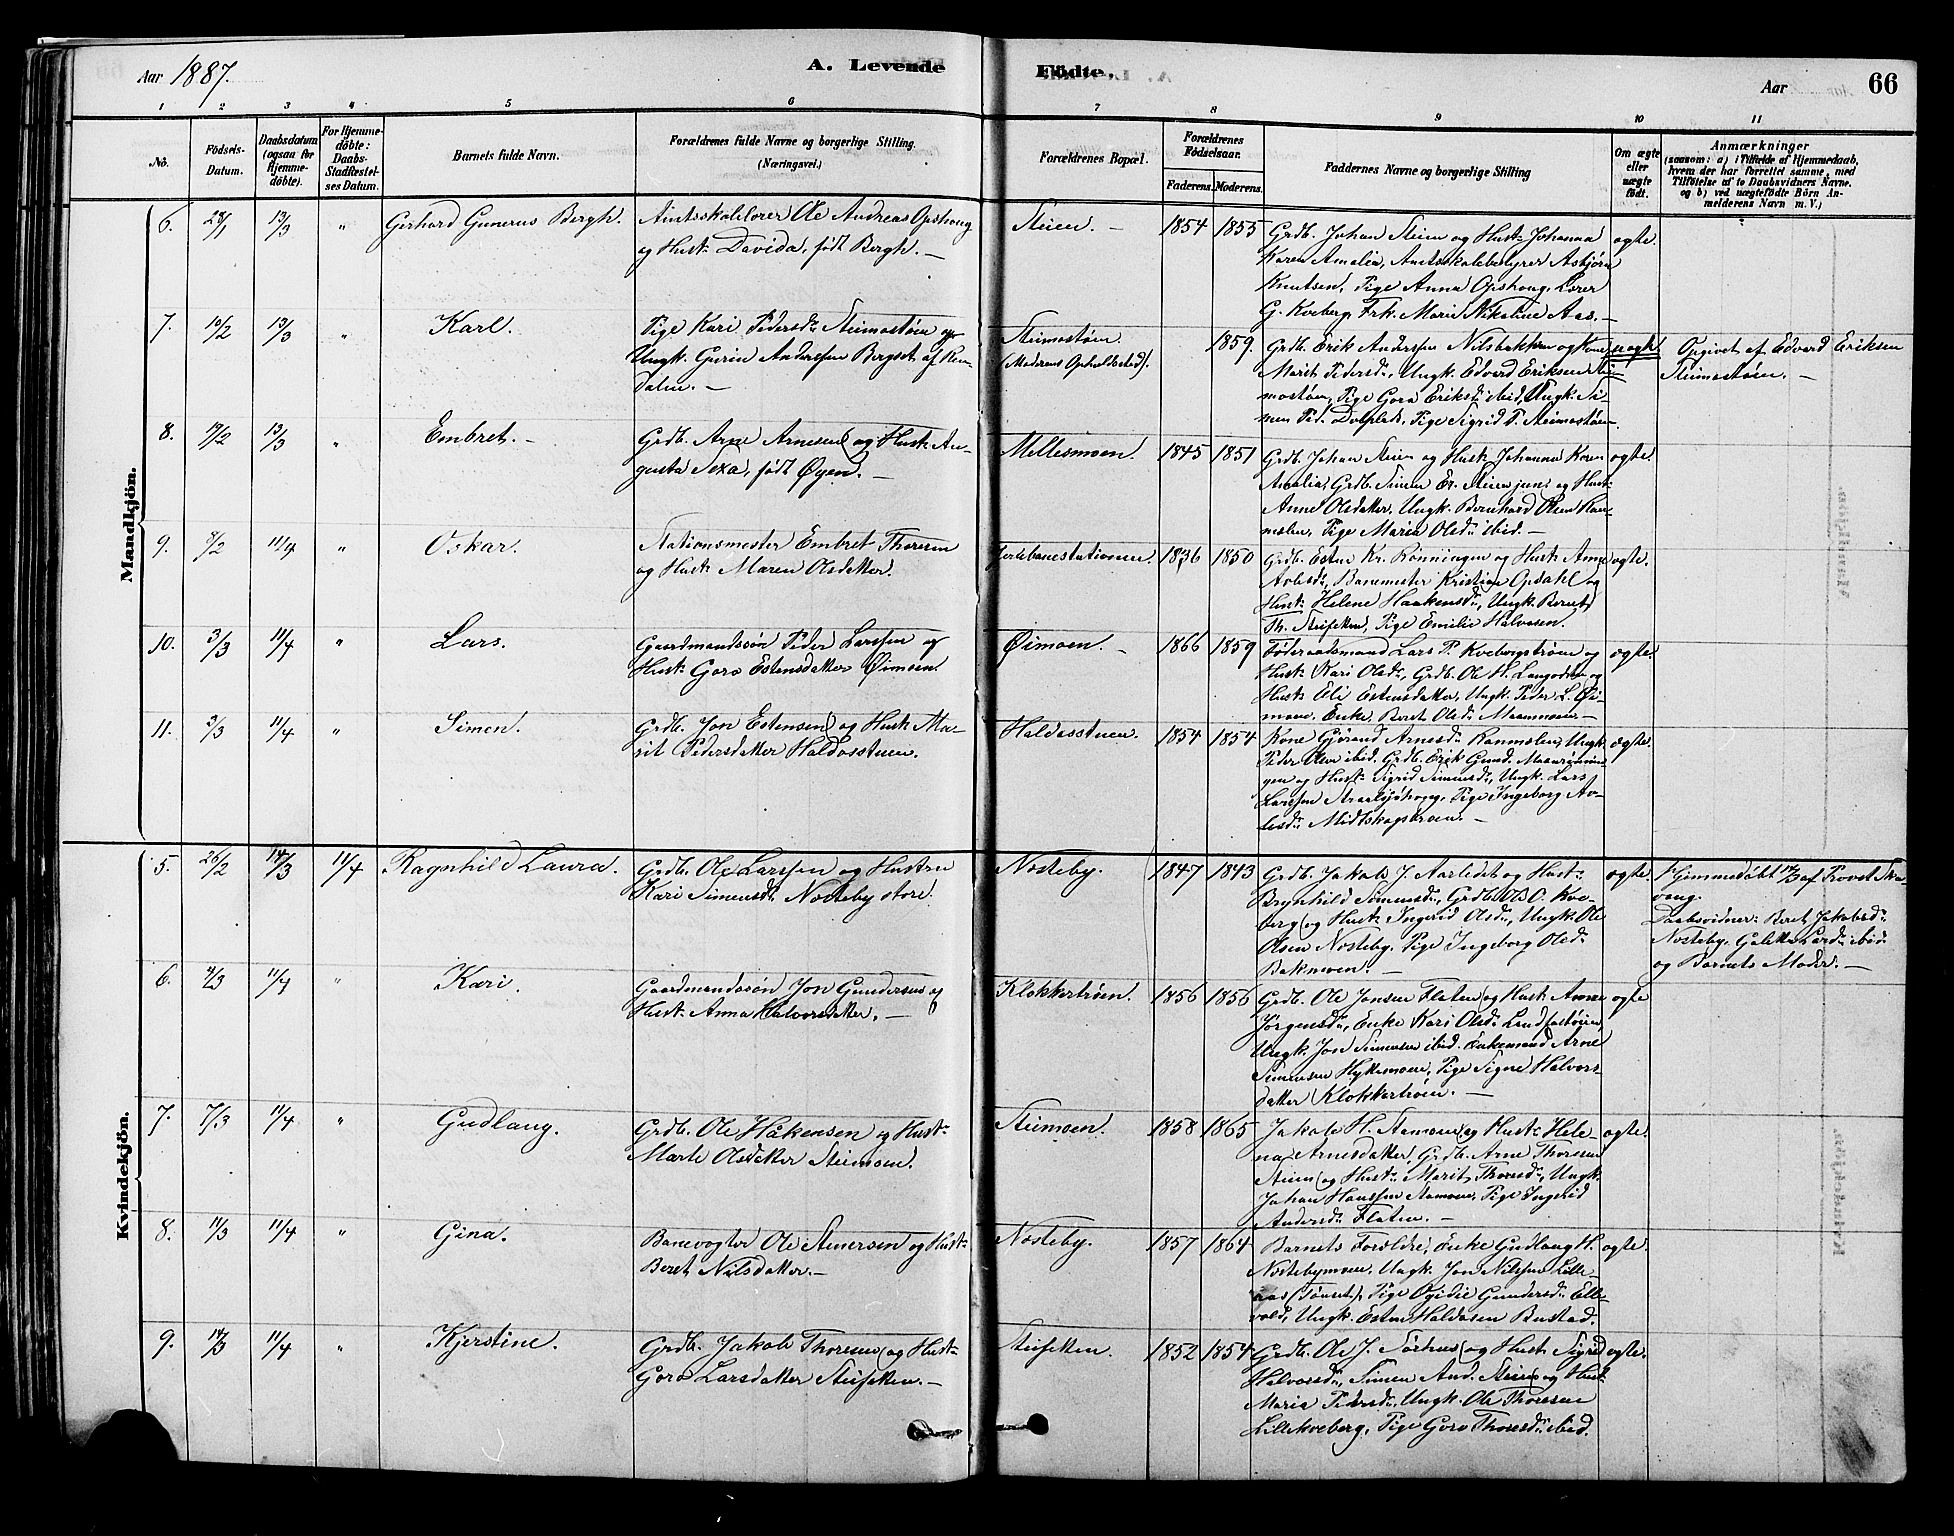 Aar 1887.
A. Levende Födte,
Aar
66
1 2 3 4 5 6 7 8 9 10 11
No.
Födsels-
Datum.
Daabsdatum
(ogsaa for
Hjemme-
döbte).
For Hjemme-
döbte:
Daabs-
Stadfæstel-
ses Datum.
Barnets fulde Navn.
Forældrenes fulde Navne og borgerlige Stilling.
(Næringsvei.)
Forældrenes Bopæl.
Forældrenes
Födselsaar.
Faderens. Moderens.
Faddernes Navne og borgerlige Stilling
Om ægte
eller
uægte
födt.
Anmærkninger
(saasom: a) i Tilfælde af Hjemmedaab,
hvem der har forrettet samme, med
Tilföielse af to Daabsvidners Navne,
og b) ved uægtefödte Börn An-
melderens Navn m. V.)
Mandkjön.
6. 28/1 13/3 " Gerhard Gunerus Bergh.
Amtsskolelærer Ole Andreas Opshoug
og Hust: Davida, født Bergh. —
Steien. —
1854 1855
Grdb. Johan Steien og Hust: Johanna
Karen Amalia, Amtsskolebestyrer Asbjørn
Knutsen, Pige Anna Opshoug, Lærer
G. Kveberg, Frk. Marie Nikoline Aas. —
ægte.
7. 10/2 13/3 " Karl.
Pige Kari Pedersd: Steimostøen og
Ungk. Gurin Anderssen Bergset af Ren-
dalen. —
Steimostøen.
(Moderens Opholdssted).
1859.
Grdb. Erik Anderssen Nilsbakken og Kone
Marit Pedersd:, Ungk. Edvard Eriksen Stei-
mostøen, Pige Goro Eriksd: ibid, Ungk. Si-
men Ped. , Pige Sigrid P. Steimostøen.
uægte.
Opgivet af Edvard Eriksen
Steimostøen. —
8. 17/2 13/3 " Embret. —
Grdb. Arne Arnesen og Hust: Au-
gusta Sexa, født Øyen. —
Mellesmoen.
1845 1851
Grdb. Johan Steien og Hust: Johanna Karen
Amalia, Grdb. Simen Er. Steien jun: og Hust:
Anne Olsdatter, Ungk. Bernhard Olsen Ram-
smoen, Pige Maria Olsd: ibid. —
ægte.
9. 7/2 11/4 " Oskar.
Stationsmester Embret Thoresen
og Hust: Maren Olsdatter.
Jernbanestationen.
1836 1850
Grdb. Esten Kr. Rønningen og Hust: Anne
Avlesd:, Banemester Kristian Opdahl og
Hust: Helene Haakensd:, Ungk. Bernt
Th. Steigeken, Pige Emilie Halvorsen.
ægte.
10. 3/3 11/4 " Lars.
Gaardmandssøn Peder Larssen og
Hust: Goro Estensdatter Øimoen
Øimoen. —
1866 1859
Føderaadsmand Lars P. Kvebergstrøen og
Hust: Kari Olsd:, Grdb. Ole H. Langodden og
Hust: Eli Estensdatter, Ungk. Peder L. Øi-
moen, Enke Beret Olsd: Maanmoen —
ægte.
11. 3/3 11/4 " Simen.
Grdb. Jon Estensen og Hust: Ma-
rit Pedersdatter Haldosstuen.
Haldosstuen.
1854 1854
Kone Gjørand Arnesd: Ramsmoen, Ungk.
Peder Olsen ibid. Grdb. Erik Gund. Maanrønnin-
gen og Hust: Sigrid Simensd:, Ungk. Lars
Larssen Straalsjøhaug, Pige Ingeborg Av-
lesd: Midtskogstrøen. —
ægte.
Kvindekjön.
5. 26/2 14/3 11/4 Ragnhild Laura.
Grdb. Ole Larssen og Hustru
Kari Simensd: Nosteby store.
Nosteby.
1847 1843
Grdb. Jakob J. Aarlidet og Hust:
Brynhild Simensd:, Grdb. Ol. O. Kve-
berg og Hust: Ingerid Olsd:, Ungk. Ole
Olsen Nosteby, Pige Ingeborg Olsd:
Bakmoen. —
ægte.
Hjemmedøbt 14/3 af Provst Ska-
vang.
Daabsvidner: Beret Jakobsd:
Nosteby, Golette Larsd: ibid.
og Barnets Moder. —
6. 4/3 11/4 " Kari.
Gaardmandssøn Jon Gundersen og
Hust: Anna Halvorsdatter. —
Klokkertrøen.
1856 1856
Grdb. Ole Jonsen Flaten og Hust: Anne
Jørgensd:, Enke Kari Olsd: Lundfastøien,
Ungk. Jon Simensen ibid. Enkemand Arne
Simensen Hyttemoen, Pige Signe Halvors-
datter Klokkertrøen. —
ægte
7. 7/3 11/4 " Gudlaug.
Grdb. Ole Håkensen og Hust:
Marte Olsdatter Steimoen.
Steimoen.
1858 1865
Jakob H. Stamoen og Hust: Hele-
na Arnesdatter, Grdb. Arne Thoresen
Steien og Hust: Marit Thoresd:, Ungk.
Johan Hanssen Stamoen, Pige Ingerid
Andersd: Flaten. —
ægte.
8. 11/3 11/4 " Gina.
Banevogter Ole Steinersen og Hust:
Beret Nilsdatter. —
Nosteby.
1857 1864
Barnets Forældre, Enke Gudlaug H.
Nostebymoen, Ungk. Jon Nilssen Lille-
aas (Tønset), Pige Ogidie Gundersd: Elle-
vold, Ungk. Esten Haldosen Bustad.
ægte.
9. 14/3 11/4 " Kjerstine.
Grdb. Jakob Thoresen og Hust:
Goro Larsdatter Steigeken. —
Steigeken.
1852 1854
Grdb. Ole J. Sørhus og Hust: Sigrid
Halvorsd:, Simen And. Steien og Hust:
Maria Pedersd:, Ungk. Ole Thoresen
Lillekveberg, Pige Goro Thoresd: ibid.
ægte.